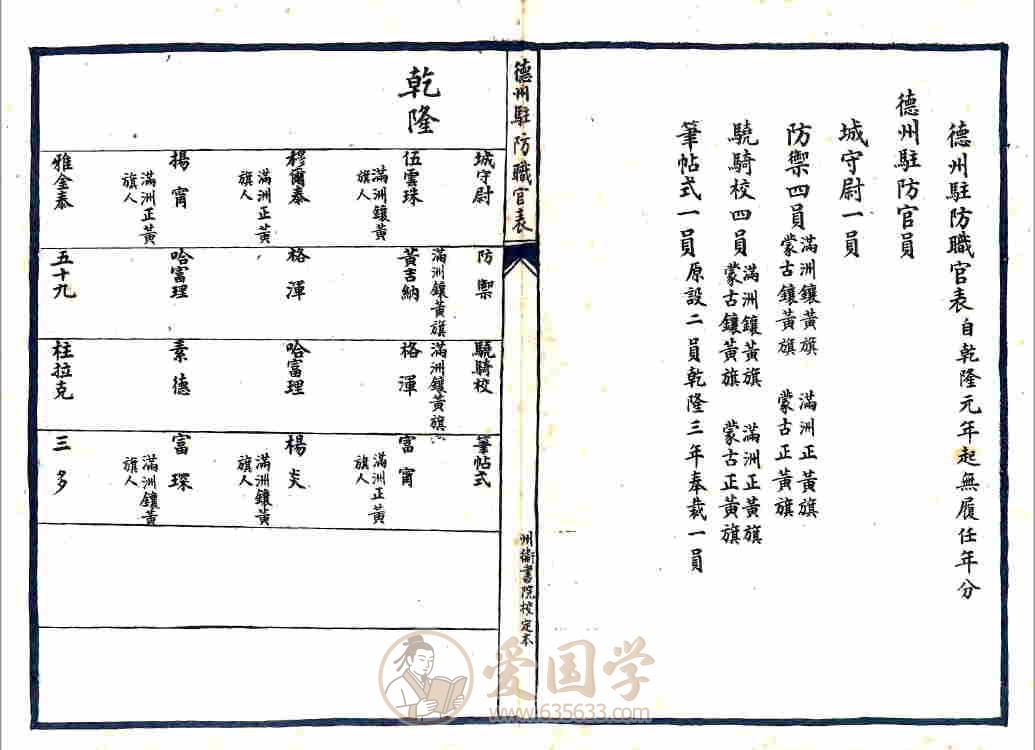 德州駐防職官表自乾隆元年起無履任年分
德州駐防官員
城守尉一員
防禦四員滿洲鑲黃旗 滿洲正黃旗
蒙古鑲黃旗 蒙古正黃旗
驍騎校四員滿洲鑲黃旗 滿洲正黃旗
蒙古鑲黃旗 蒙古正黃旗
筆帖式一員原設二員乾隆三年奉裁一員
德州駐防職官表
州衛書院校定本
乾隆
城守尉
伍雲珠
滿洲鑲黃
旗人
穆爾泰
滿洲正黃
旗人
揚甯
滿洲正黃
旗人
雅金泰
防禦
滿洲鑲黃旗
黃吉納
格渾
哈富理
五十九
驍騎校
滿洲鑲黃旗
格渾
哈富理
素德
柱拉克
筆帖式
富甯
滿洲正黃
旗人
楊炎
滿洲鑲黃
旗人
富琛
滿洲鑲黃
旗人
三多
爱国学
www.635633.com